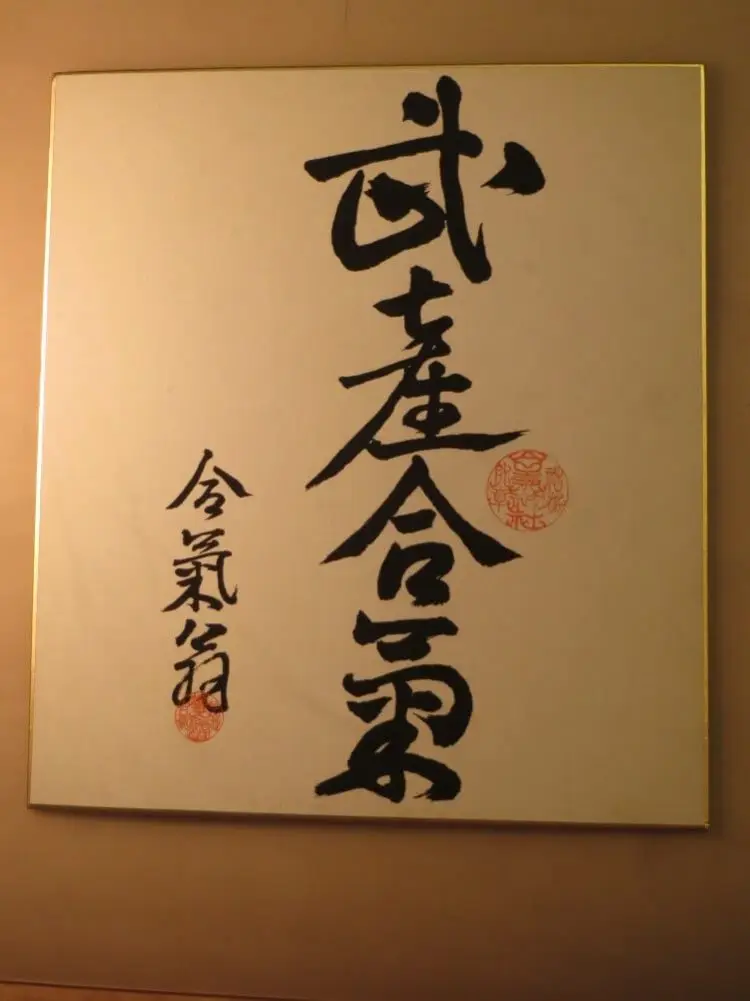 武産合氣
合氣翁